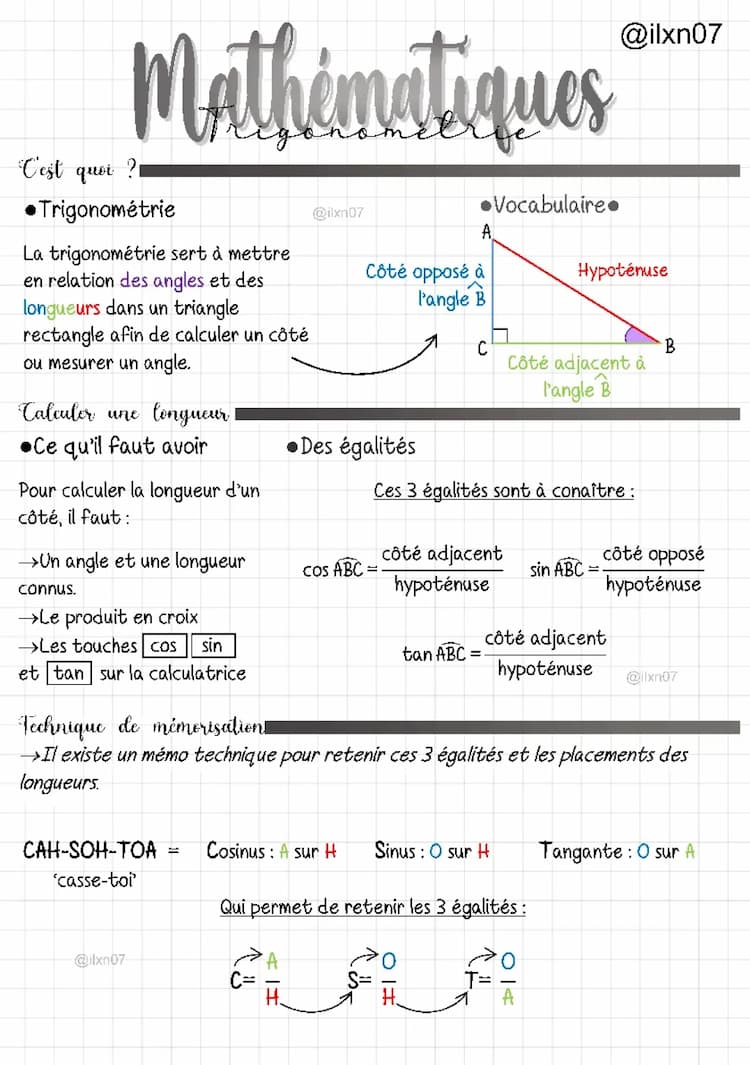 @ilxn07
Mathématiques
Trigonométrie
C'est quoi ?
●Trigonométrie
@ilxn07
La trigonométrie sert à mettre
en relation des angles et des
longueurs dans un triangle
rectangle afin de calculer un côté
ou mesurer un angle.
●Vocabulaire●
A
Côté opposé à
l'angle B̂
Hypoténuse
C
B
Côté adjacent à
l'angle B̂
Calculer une longueur
●Ce qu'il faut avoir
Pour calculer la longueur d'un
côté, il faut :
→Un angle et une longueur
connus.
→Le produit en croix
→Les touches cos sin
et tan sur la calculatrice
●Des égalités
Ces 3 égalités sont à conaître :
cos ABC = côté adjacent / hypoténuse
sin ABC = côté opposé / hypoténuse
tan ABC = côté adjacent / hypoténuse
@ilxn07
Technique de mémorisation
→Il existe un mémo technique pour retenir ces 3 égalités et les placements des
longueurs.
CAH-SOH-TOA = Cosinus : A sur H Sinus : O sur H Tangante : O sur A
'casse-toi'
Qui permet de retenir les 3 égalités :
@ilxn07
C= A / H S= O / H T= O / A